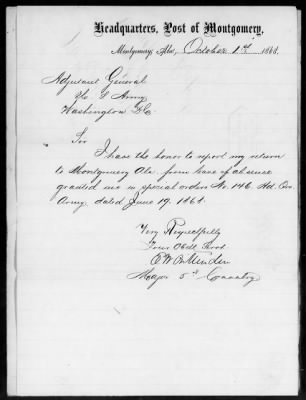 Headquarters, Post of Montgomery,
Montgomery, Ala., October 1st 1868.
Adjutant General
U. S. Army
Washington D.C.
Sir
I have the honor to report my return
to Montgomery Ala. from leave of absence
granted me in special orders No. 146. Hd. Qrs
Army, dated June 19. 1868.
Very Respectfully
Your Obdt Servt
Major 5th Cavalry